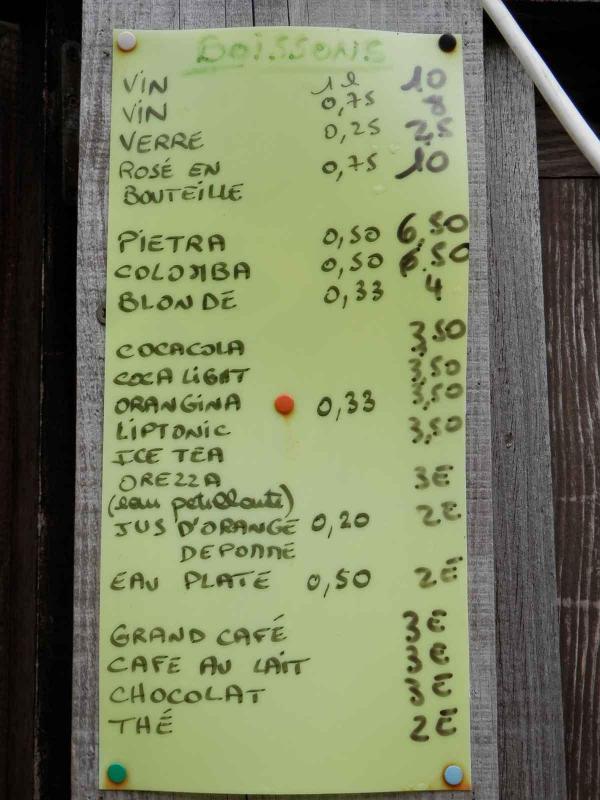 BOISSONS
VIN 1l 10
VIN 0,75 8
VERRE 0,25 2,5
ROSÉ EN 0,75 10
BOUTEILLE
PIETRA 0,50 6,50
COLOMBA 0,50 6,50
BLONDE 0,33 4
COCACOLA 3,50
COCA LIGHT 3,50
ORANGINA 0,33 3,50
LIPTONIC 3,50
ICE TEA
OREZZA 3E
(eau petillante)
JUS D'ORANGE 0,20 2E
DE POMME
EAU PLATE 0,50 2E
GRAND CAFÉ 3E
CAFE AU LAIT 3E
CHOCOLAT 3E
THÉ 2E